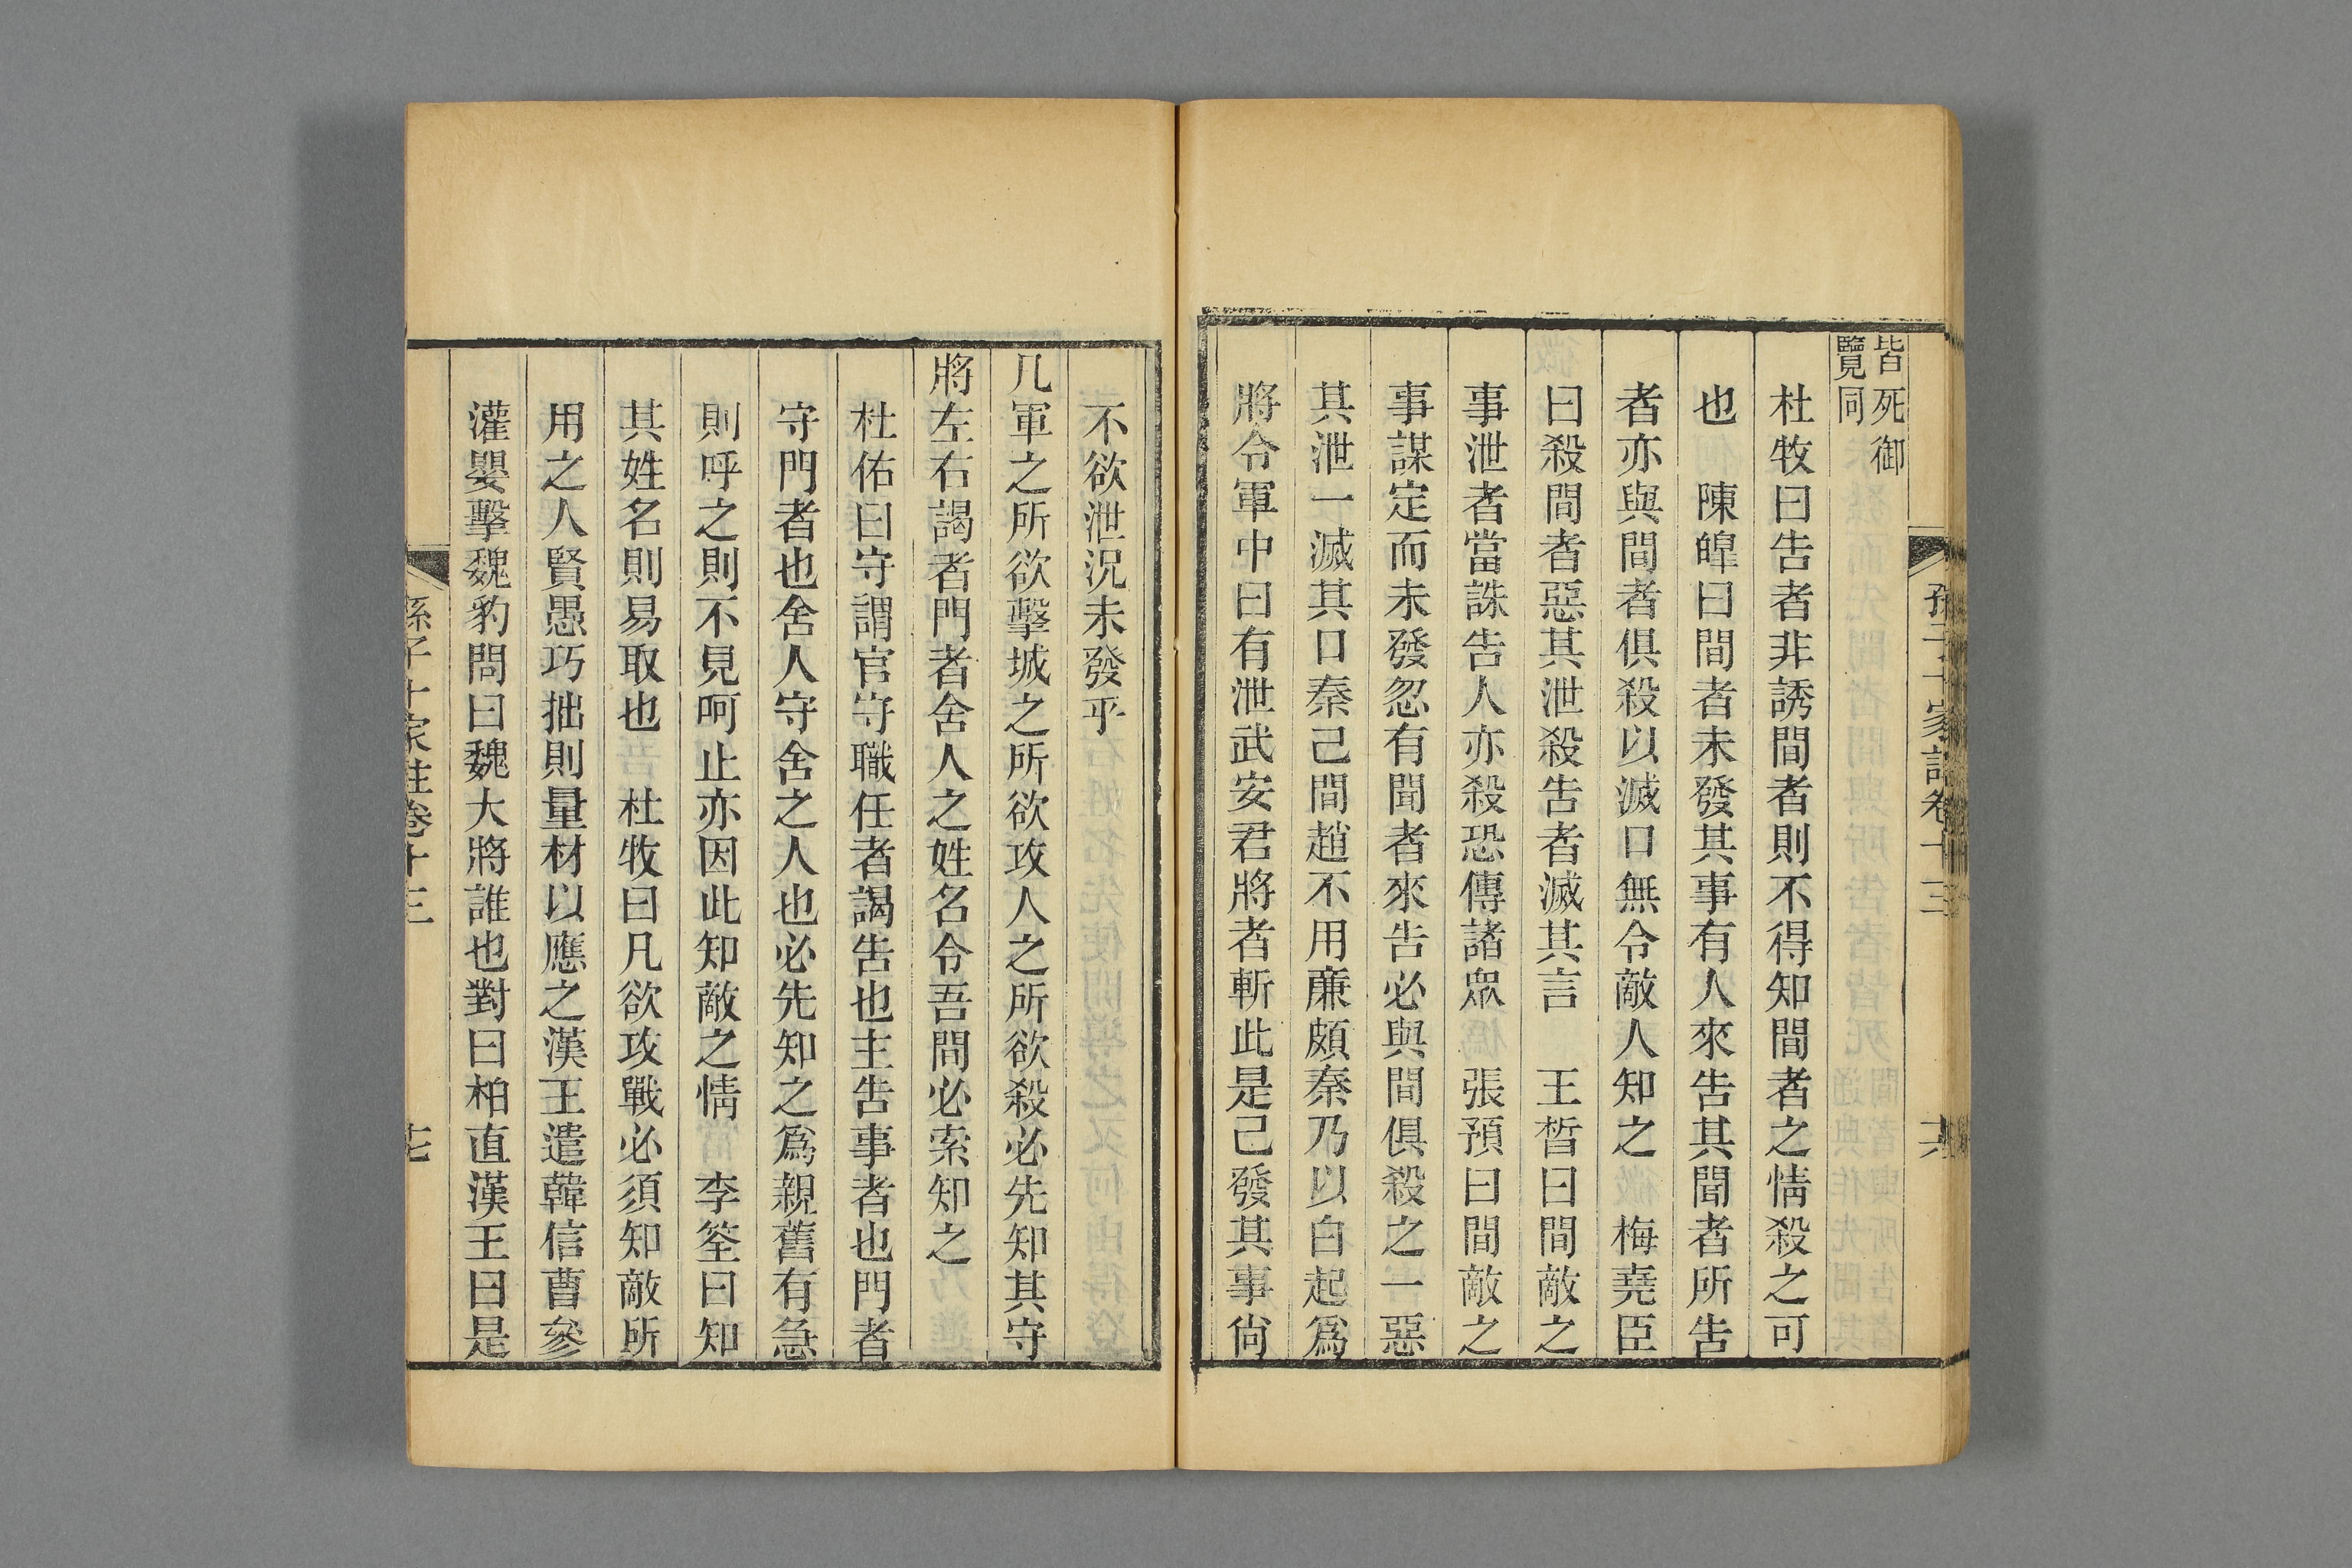 皆死御
覽同
杜牧曰告者非誘間者則不得知間者之情殺之可
也　陳皥曰間者未發其事有人來告其聞者所告
者亦與間者俱殺以滅口無令敵人知之　梅堯臣
曰殺間者惡其泄殺告者滅其言　王晳曰間敵之
事泄者當誅告人亦殺恐傳諸眾　張預曰間敵之
事謀定而未發忽有聞者來告必與間俱殺之一惡
其泄一滅其口秦己間趙不用廉頗秦乃以白起爲
將令軍中曰有泄武安君將者斬此是己發其事尙
孫子十家註卷十三
十六
不欲泄況未發乎
凡軍之所欲擊城之所欲攻人之所欲殺必先知其守
將左右謁者門者舍人之姓名令吾間必索知之
杜佑曰守謂官守職任者謁告也主告事者也門者
守門者也舍人守舍之人也必先知之爲親舊有急
則呼之則不見呵止亦因此知敵之情　李筌曰知
其姓名則易取也　杜牧曰凡欲攻戰必須知敵所
用之人賢愚巧拙則量材以應之漢王遣韓信曹參
灌嬰擊魏豹問曰魏大將誰也對曰柏直漢王曰是
孫子十家註卷十三
十七